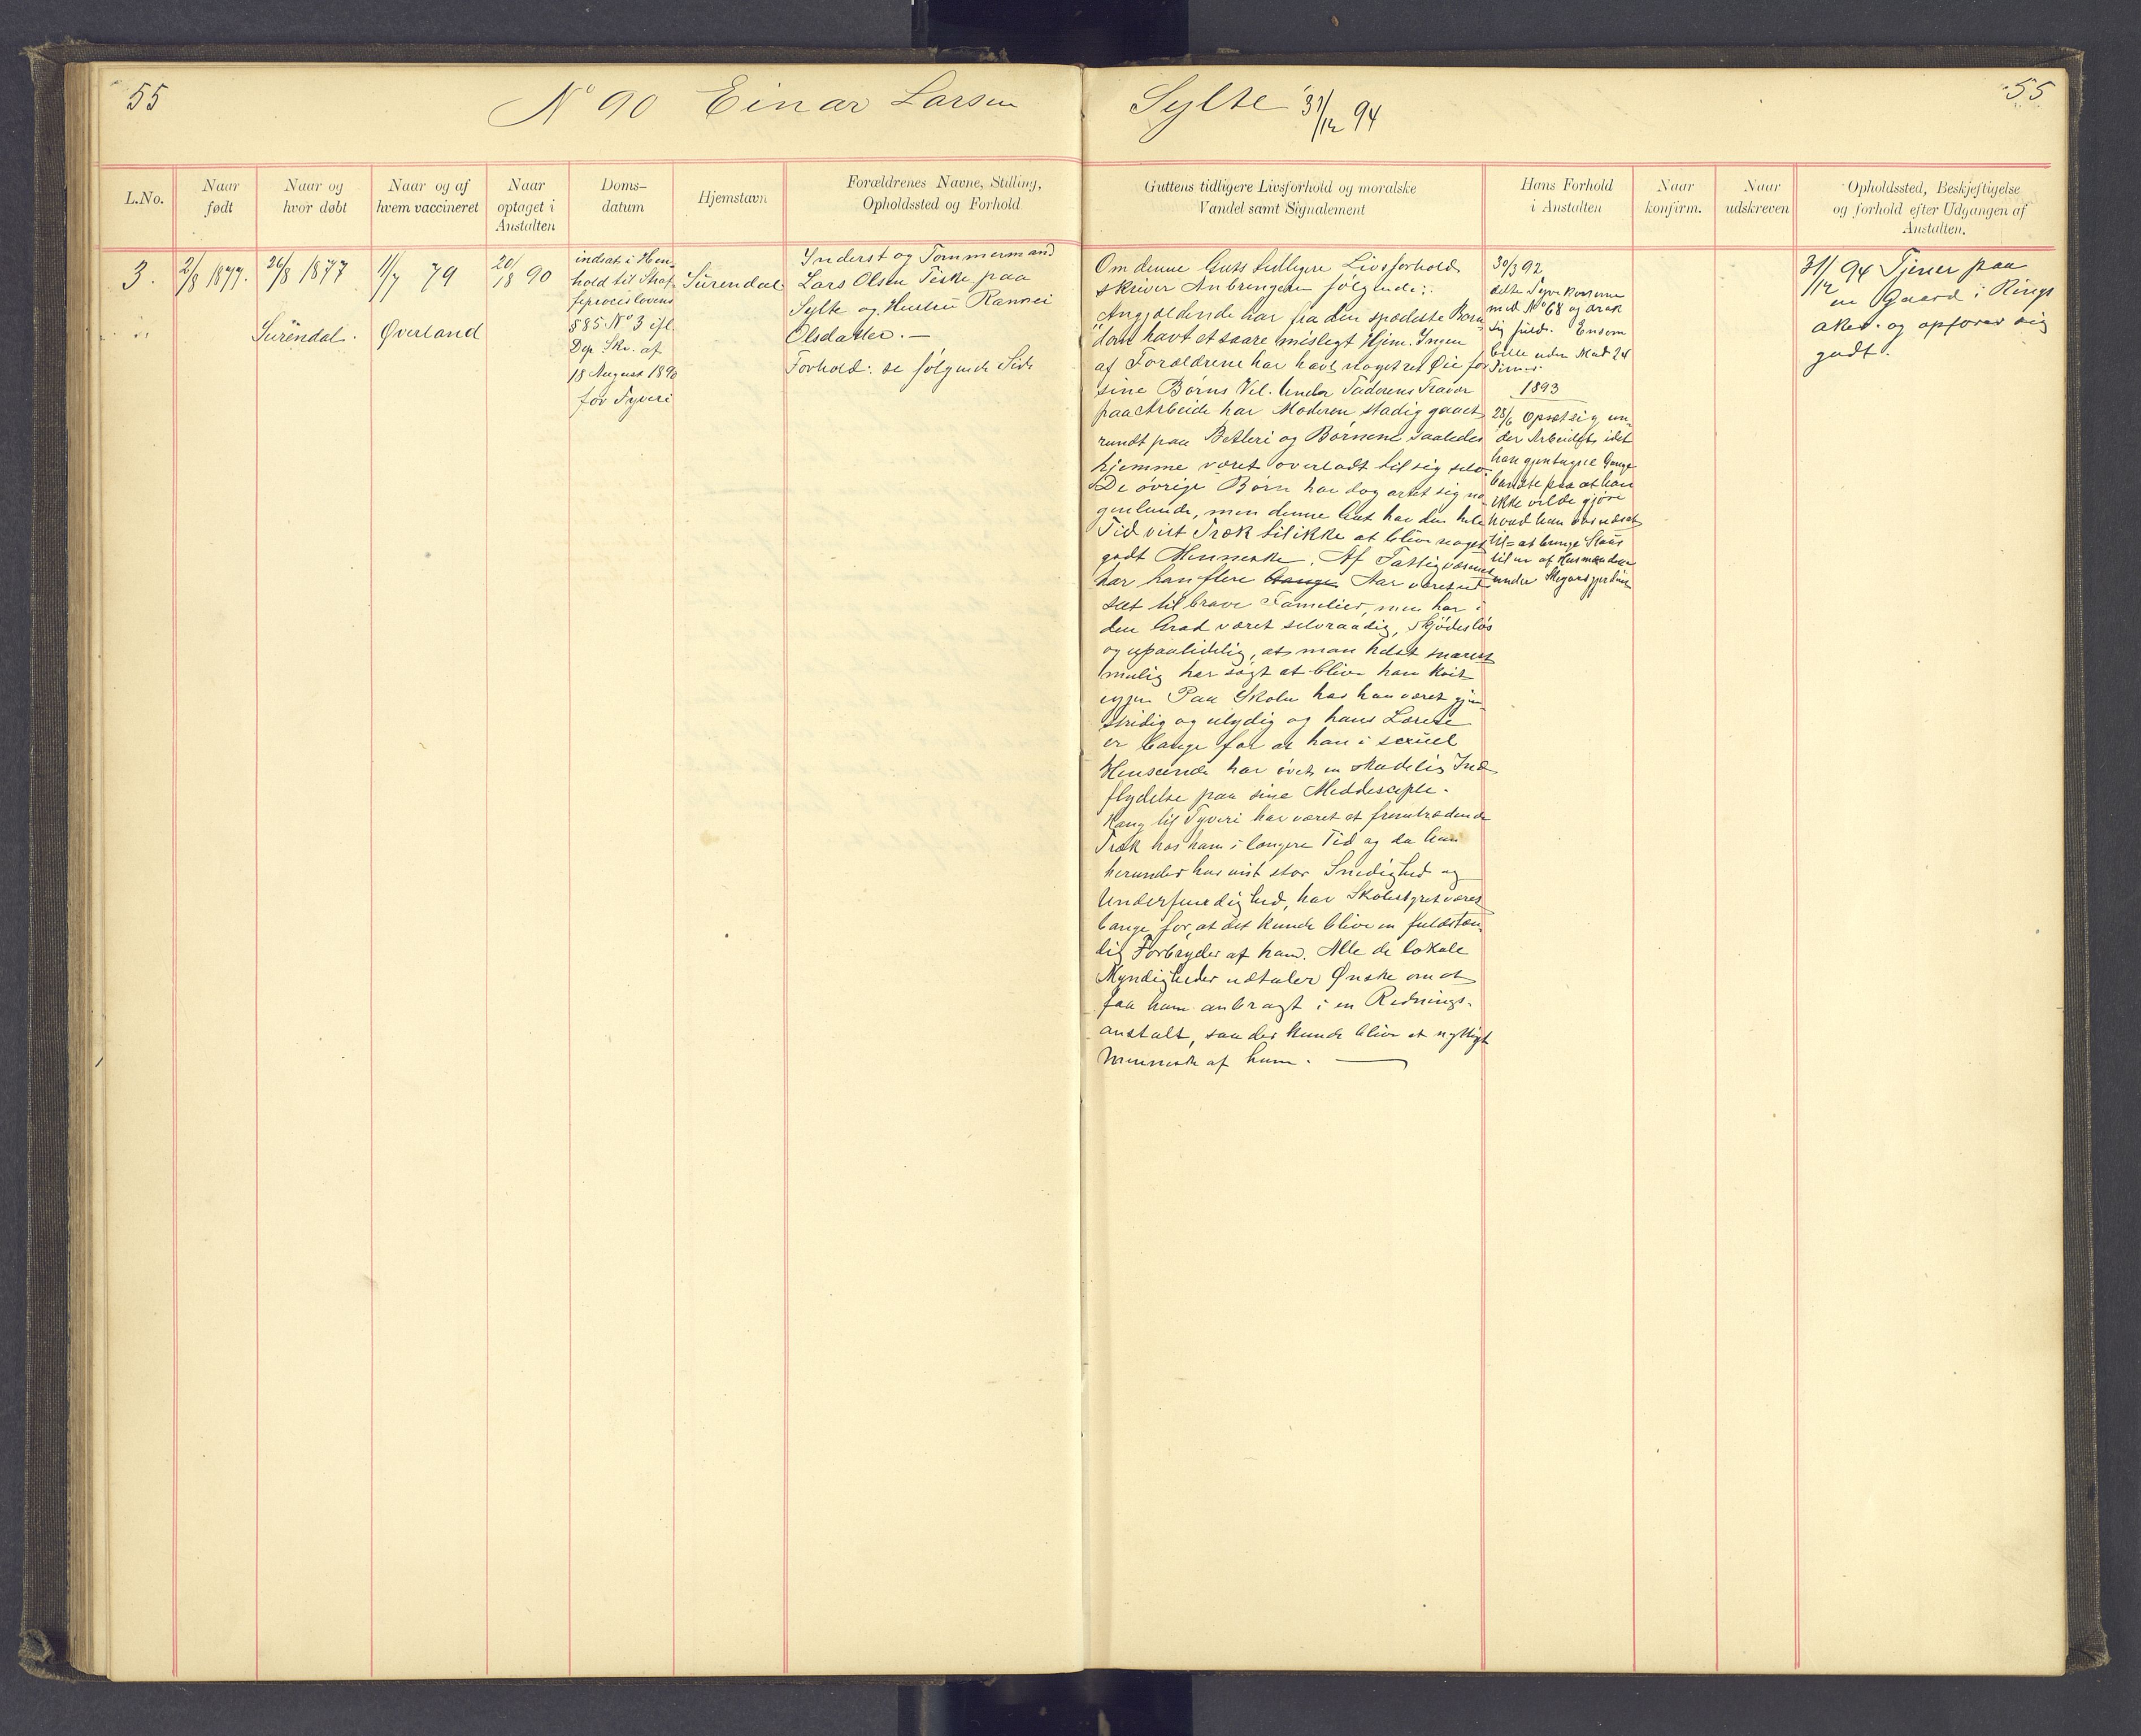 55
No 90 Einar Larsen
Sylte 31/12 94
55
L.No.
Naar
født
Naar og
hvor døbt
Naar og af
hvem vaccineret
Naar
optaget i
Anstalten
Doms-
datum
Hjemstavn
Forældrenes Navne, Stilling,
Opholdssted og Forhold
Guttens tidligere Livsforhold og moralske
Vandel samt Signalement
Hans Forhold
i Anstalten
Naar
konfirm.
Naar
udskreven
Opholdssted, Beskjeftigelse
og forhold efter Udgangen af
Anstalten.
3.
2/8 1877.
26/8 1877
Surendal.
11/7 79
Øverland
20/8 90
indsat i Hen
hold til Straf
feprocislovens
§ 85 No 3 ifl.
Dep. Skr. af
18 August 1890
for Tyveri
Surendal
Inderst og Tømmermand
Lars Olsen Teske paa
Sylte og Hustru Rannei
Olsdatter. —
Forhold: se følgende Side
Om denne Guts tidligere Livsforhold
skriver Anbringeren følgende:
"Angjældende har fra den spædeste Barn
dom havt et saare misligt Hjem. Ingen
af Forældrene har havt noget ret Øie for
sine Børns Vel. Under Faderens Fravær
paa Arbeide har Moderen stadig gaaet
rundt paa Betleri og Børnene saaledes
hjemme været overladt til sig selv.
De øvrige Børn har dog artet sig no
genlunde, men denne Gut har den hele
Tid vist Træk til ikke at blive noget
godt Menneske. Af Fattigvæsenet
har han flere Gange Aar været ud
sat til brave Familier, men har i
den Grad været selvraadig, skjødesløs
og upaalidelig, at man helst snarest
mulig har søgt at blive ham kvit
igjen. Paa Skolen har han været gjen
stridig og ulydig og hans Lærere
er bange for at han i sexuel
Henseende har øvet en skadelig Ind
flydelse paa sine Meddisciple.
Hang til Tyveri har været et fremtrædende
Træk hos ham i længere Tid og da han
herunder har vist stor Snedighed og
Underfundighed, har Skolestyret været
bange for, at det kunde blive en fuldstæn
dig Forbryder af ham. Alle de lokale
Myndigheder udtaler Ønske om at
faa ham anbragt i en Rednings-
anstalt, saa der kunde blive et nyttigt
Menneske af ham. —
30/3 92
delte Tyvekosterne
med No 68 og drak
sig fuld. Ensom
Celle uden Mad 24
Timer
1893
28/6 Opsat sig un
der Arbeidet, idet
han gjentagne Gange
bandte paa at han
ikke vilde gjøre
hvad han var udsat
til = at bringe Staur
til en af Husmændene
under Skogaardgjerdin
31/12 94 Tjener paa
en Gaard i Rings
aker. og opfører sig
godt.